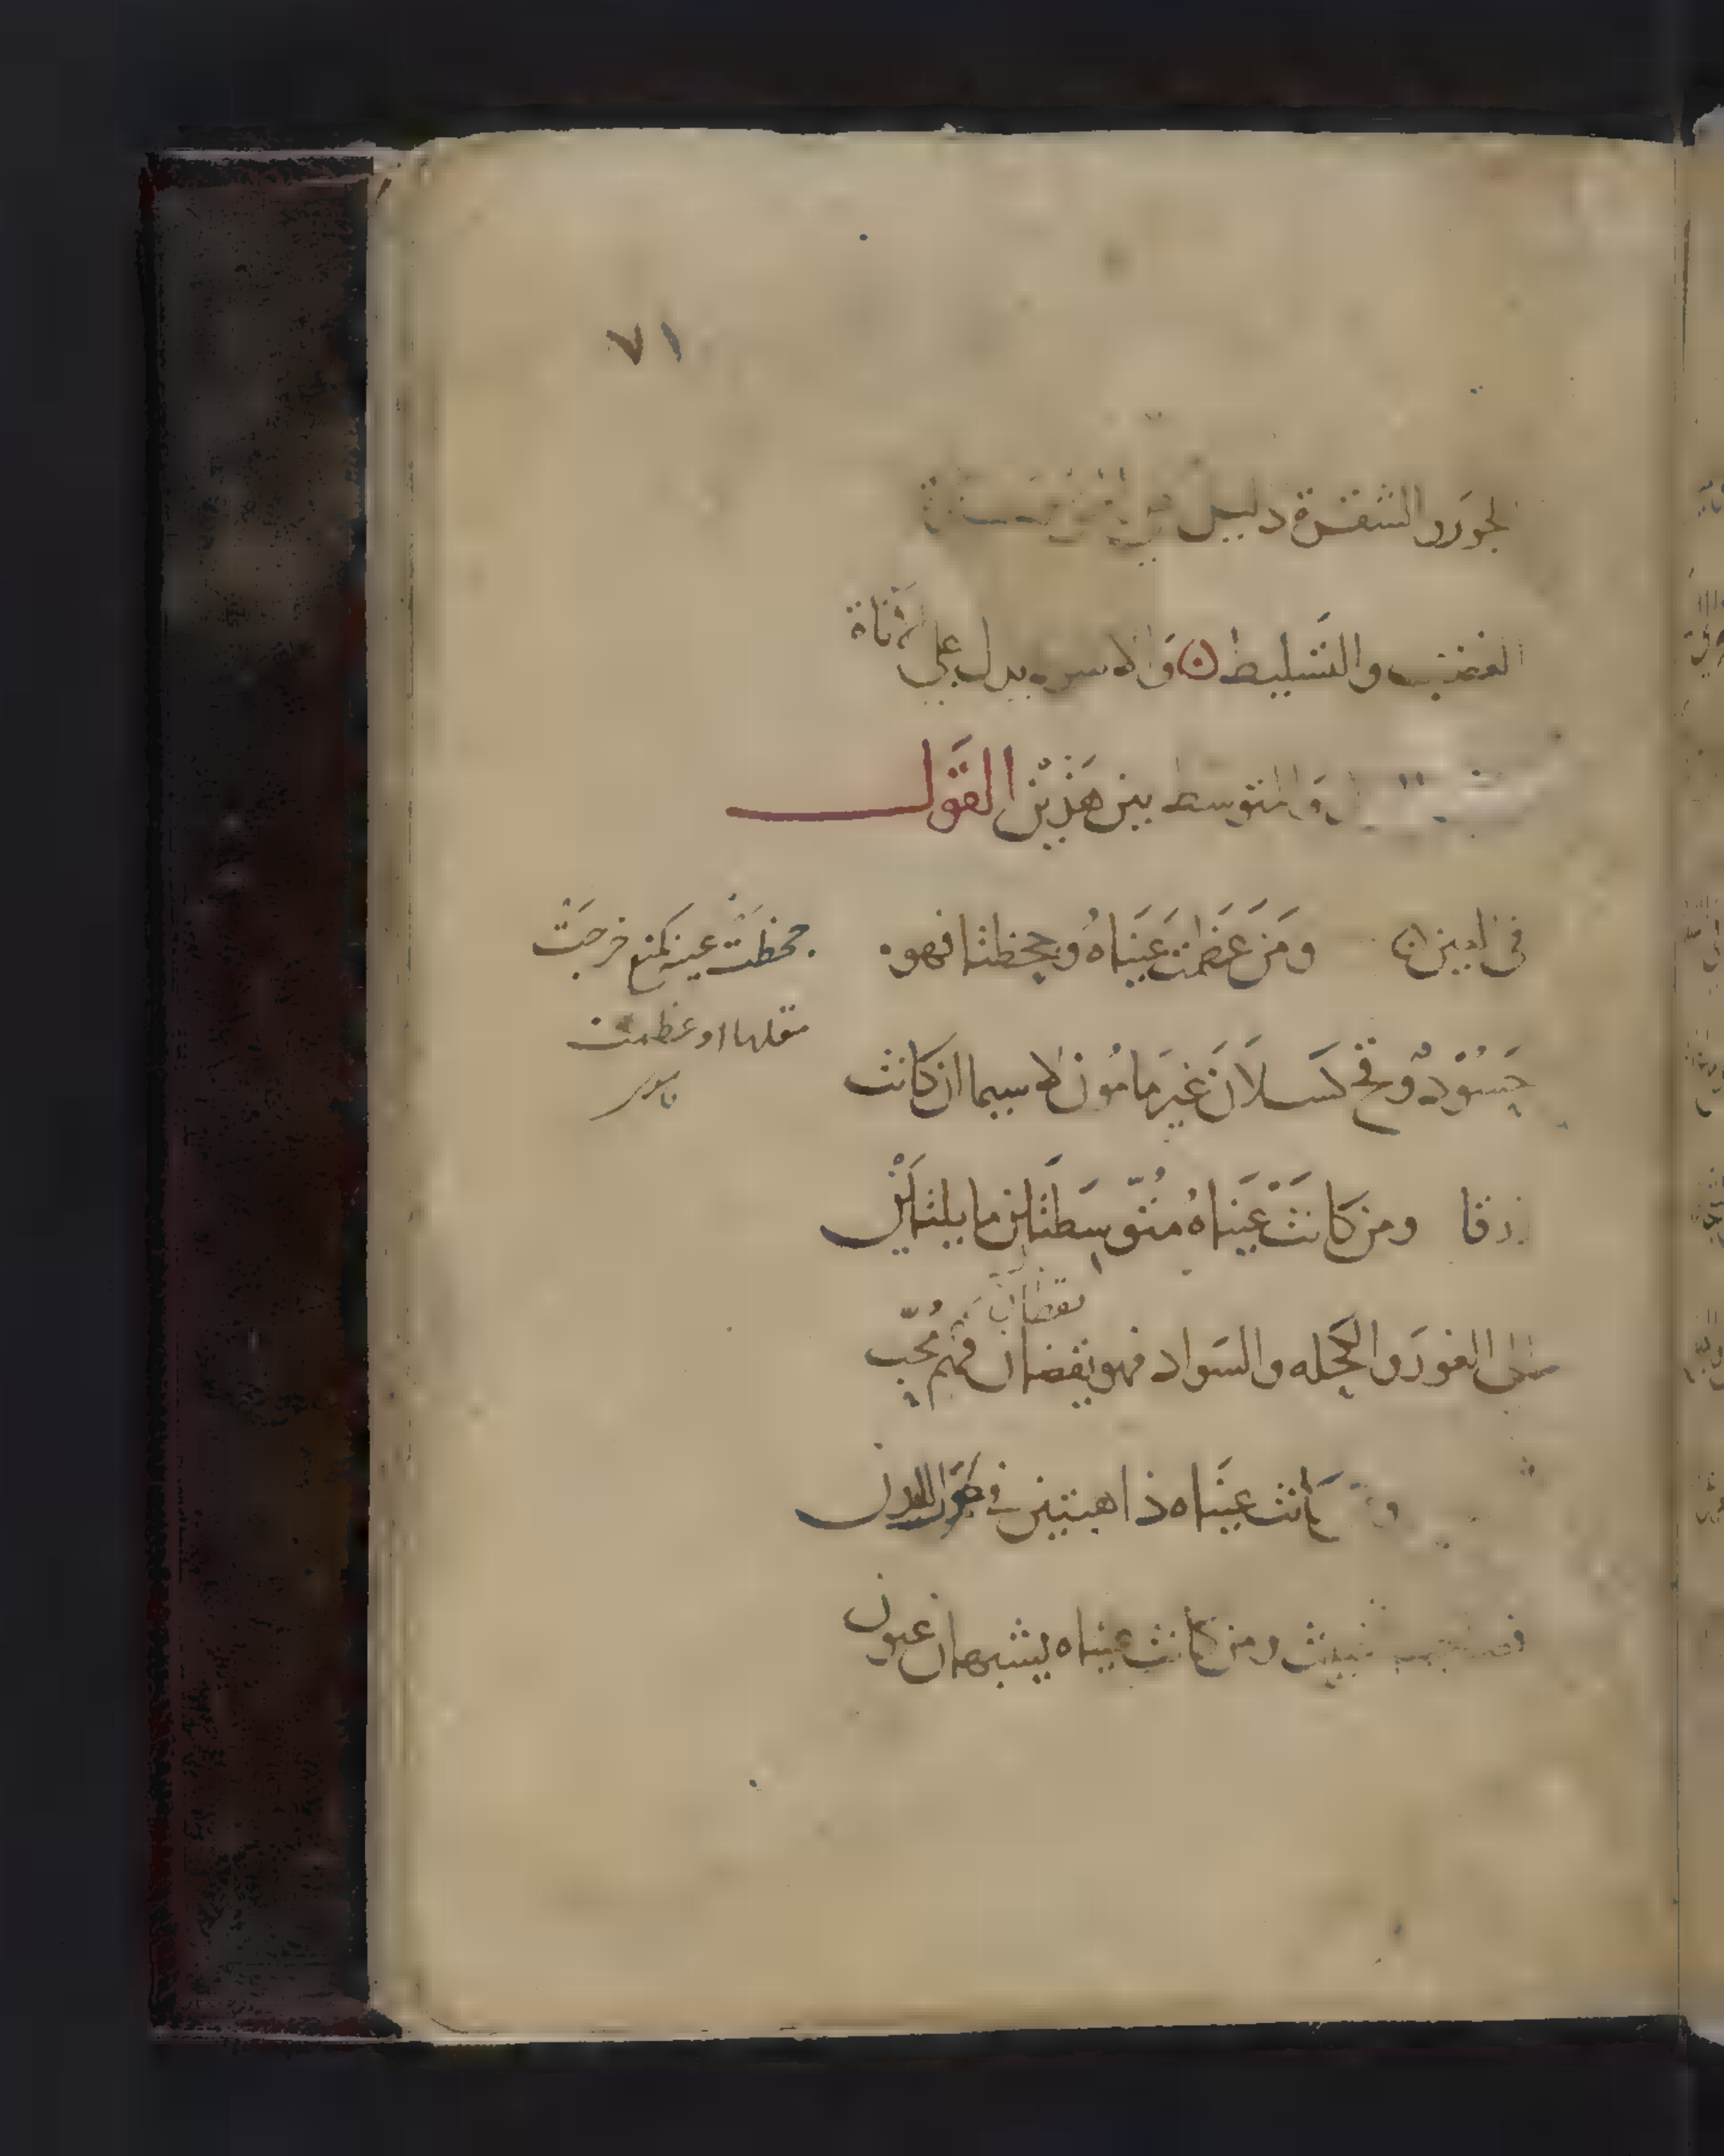 ٧١
والشقرة دليل
الغضب والتسليط والاسود يدل على الاناة
والمتوسط بين هذين القول
في العين ومن عَظمت عَينَاهُ وجحظتا فهو
حَسُوْدٌ وقح كسلاَنَ غيرَ مامُون لا سيما ان كانت
زرقا ومن كَانتْ عَينَاهُ مُتوسِطَتَين مايلتَيْن
الى الغورَ والكحله والسَواد فهو يقضان فهم مُحبّ
يقضان
كَانت عينَاه ذاهبتين في طول البدن
خبيث ومن كانت عيناه يشبهان عيون
جحظَتْ عينه كمنع خرجَتْ
مقلتها او عظمت
قاموس